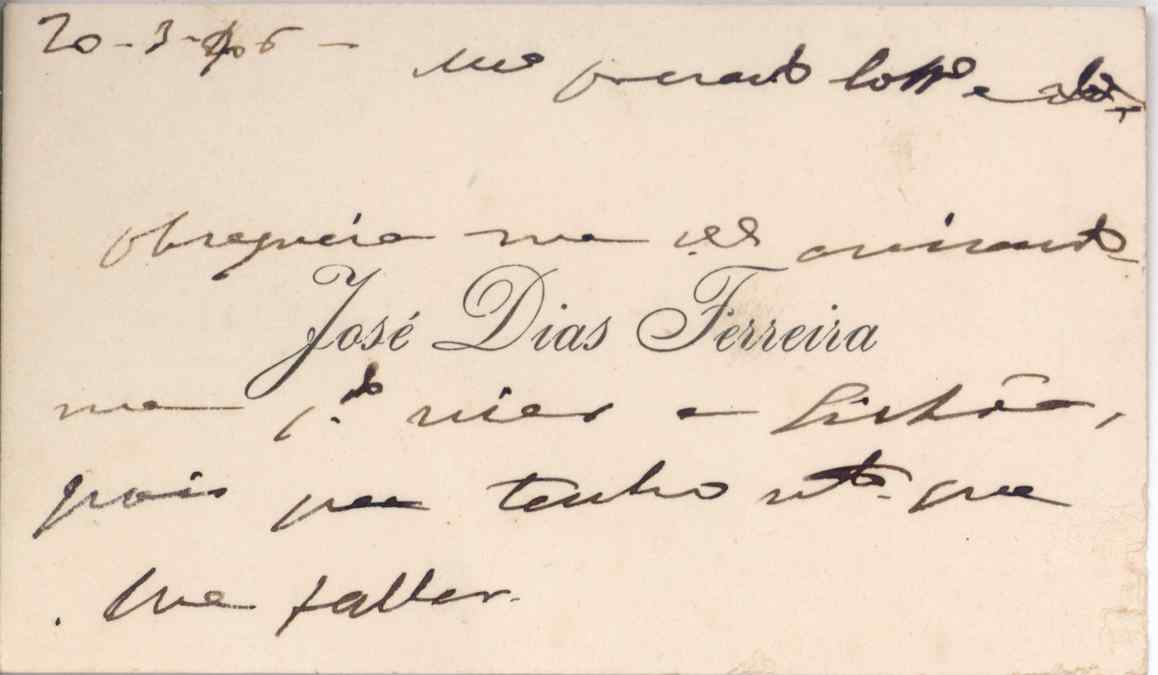 20-3-906 -
Meu presado Coll.ª e
obsequeia-me V. Exª avisando-
José Dias Ferreira
me q.do vier a Lisbôa,
pois que tenho mto. que
lhe fallar.